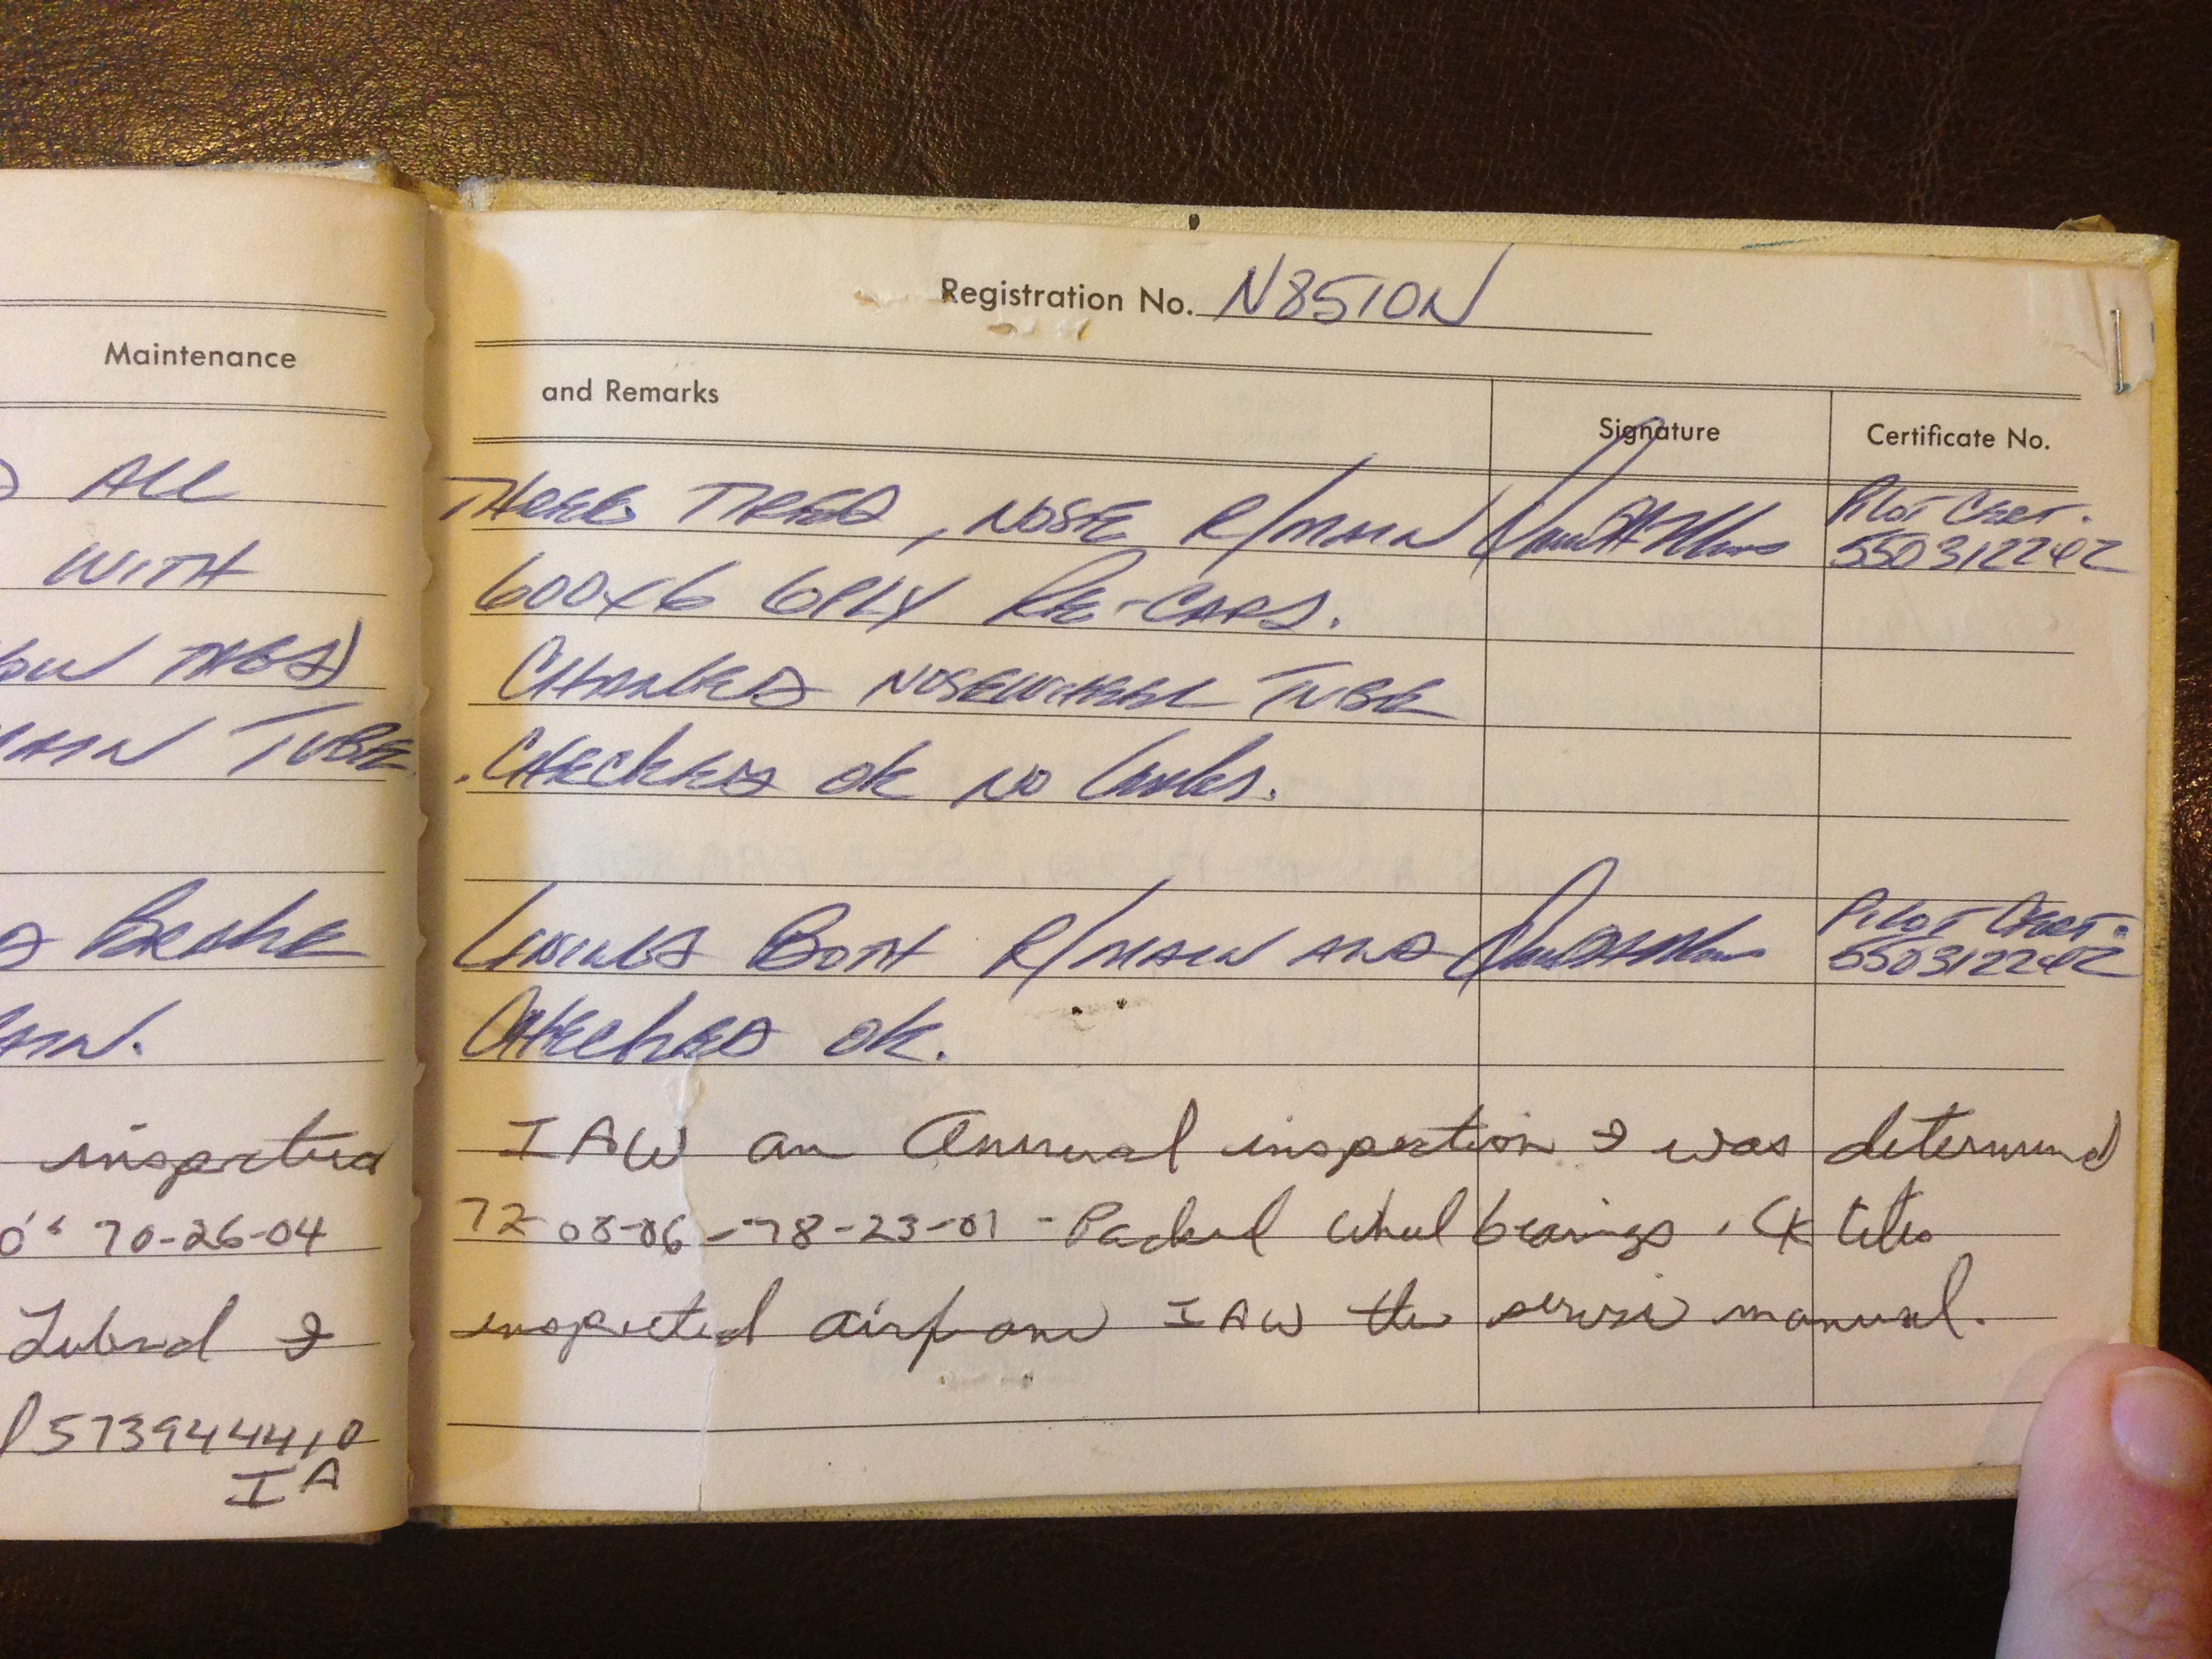 Registration No. N8510N
Maintenance and Remarks Signature Certificate No.
ALL THREE TIRES, NOSE R/MAIN PILOT CERT.
550312242
WITH 600x6 6PLY RE-CAPS.
TIRES) CHANGED NOSEWHEEL TUBE
TUBE. CHECKED OK NO Leaks.
BRAKE LININGS BOTH R/MAIN AND PILOT CERT.
550312242
CHECKED OK.
inspected IAW an Annual inspection & was determined
70-26-04 72-08-06 - 78-23-01 - Packed wheel bearings, CK
Lubed & inspected airplane IAW the service manual.
573944410
IA